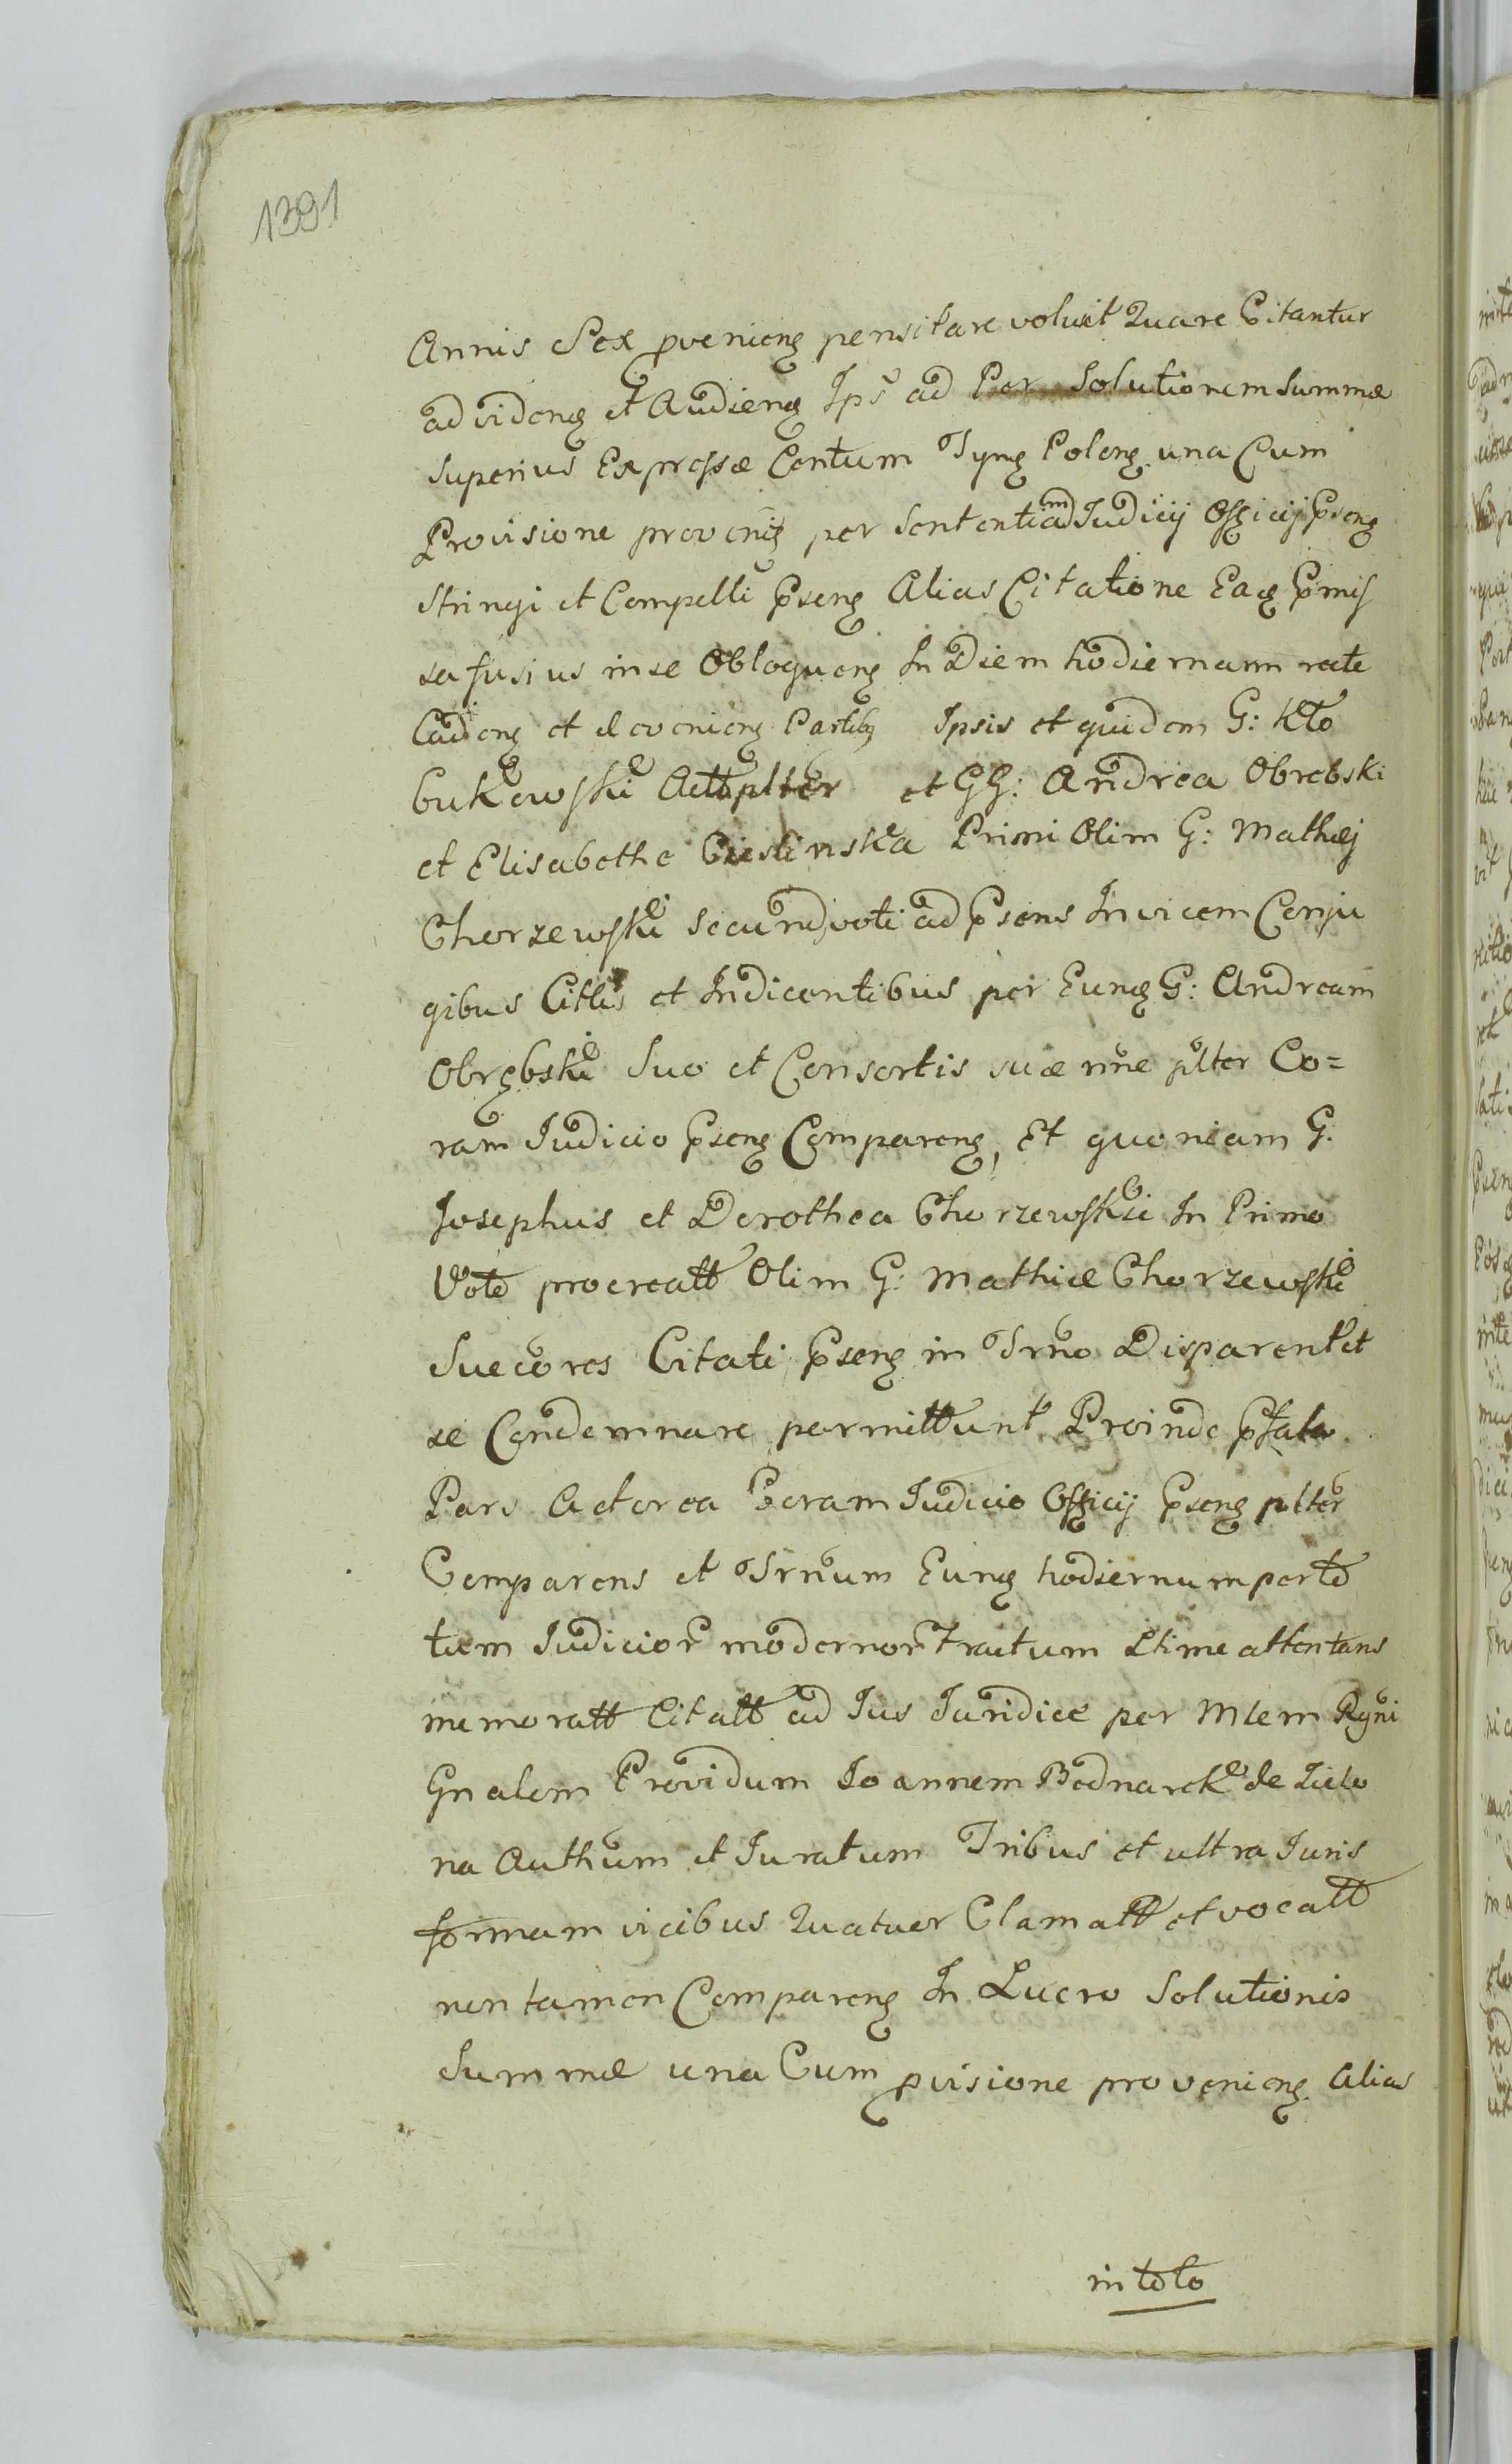 1391
Annis Sex pveniens pensitare voluit Quare Citantur
ad videns et Audiens Ips ad Per Solutionem Summæ
superius Expressæ Centum Tyns Polons una Cum
Provisione provens per Sententiam Judicij Officij Psens
stringi et Compelli Psens Alias Citatione Eaq Pmis
sa fusius in se Obloquens In Diem hodiernam rate
Cadens et deveniens Partibq Ipsis et quidem G:
Bukowski Act plter et GG: Andrea Obrebski
et Elisabetha Cieslinska Primi Olim G: Mathæj
Chorzewski secund voti ad Psens Invicem Conju
gibus Citlis et Indicentibus per Eunq G: Andream
Obrębski Suo et Consortis suæ nne plter Co=
ram Judicio Psens Comparens, Et quoniam G.
Josephus et Dorothea Chorzewskie In Primo
Voto procreatt Olim G: Mathiæ Chorzewski
Succores Citati Psens in Trno Disparent et
se Condemnare permittunt Proinde Pfata
Pars Actorea Coram Judicio Officij Psens plter
Comparens et Trnum Eunq hodiernum per to
tum Judicior modernor Tractum Ltime attentans
memoratt Citatt ad Jus Juridice per Mlem Rgni
Gnalem Providum Joannem Bednarek de Zielo
na Authum et Juratum Tribus et ultra Juris
formam vicibus Quatuor Clamatt et vocatt
non tamen Comparens In Lucro Solutionis
Summæ una Cum pvisione proveniens Alias
in toto